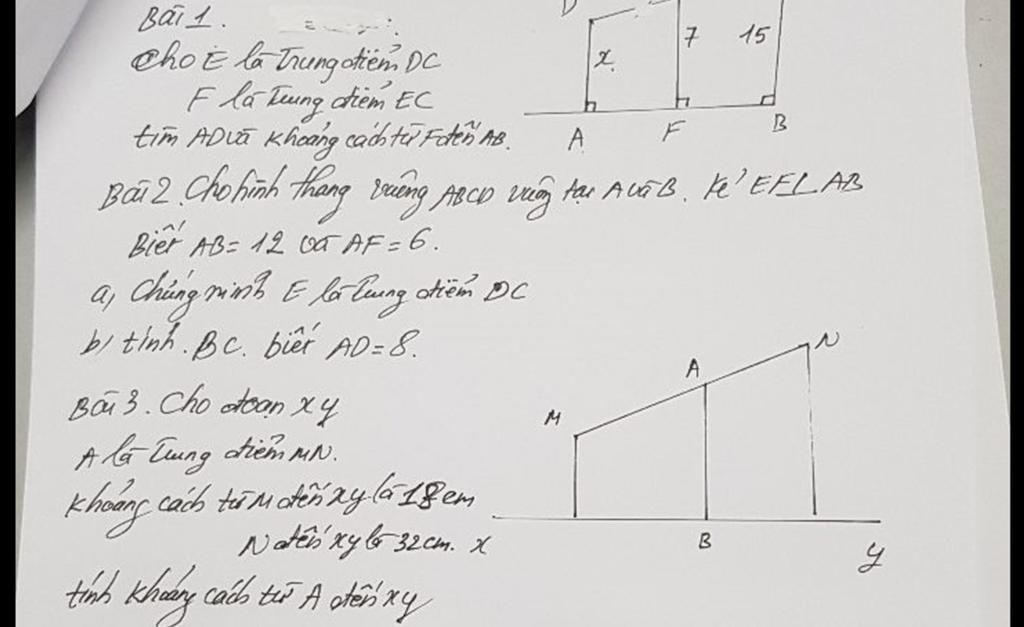 Bài 1.
D
7 15
x
Cho E là Trung điểm DC
F là Trung điểm EC
tìm AD và khoảng cách từ F đến AB.
A F B
Bài 2. Cho hình thang vuông ABCD vuông tại A và B. Kẻ EF⊥AB
Biết AB = 12 và AF = 6.
a, Chứng minh E là Trung điểm DC
b, tính. BC. biết AD = 8.
Bài 3. Cho đoạn xy
A là Trung điểm MN.
M A N
Khoảng cách từ M đến xy là 18 cm
N đến xy là 32 cm.
x B y
tính khoảng cách từ A đến xy